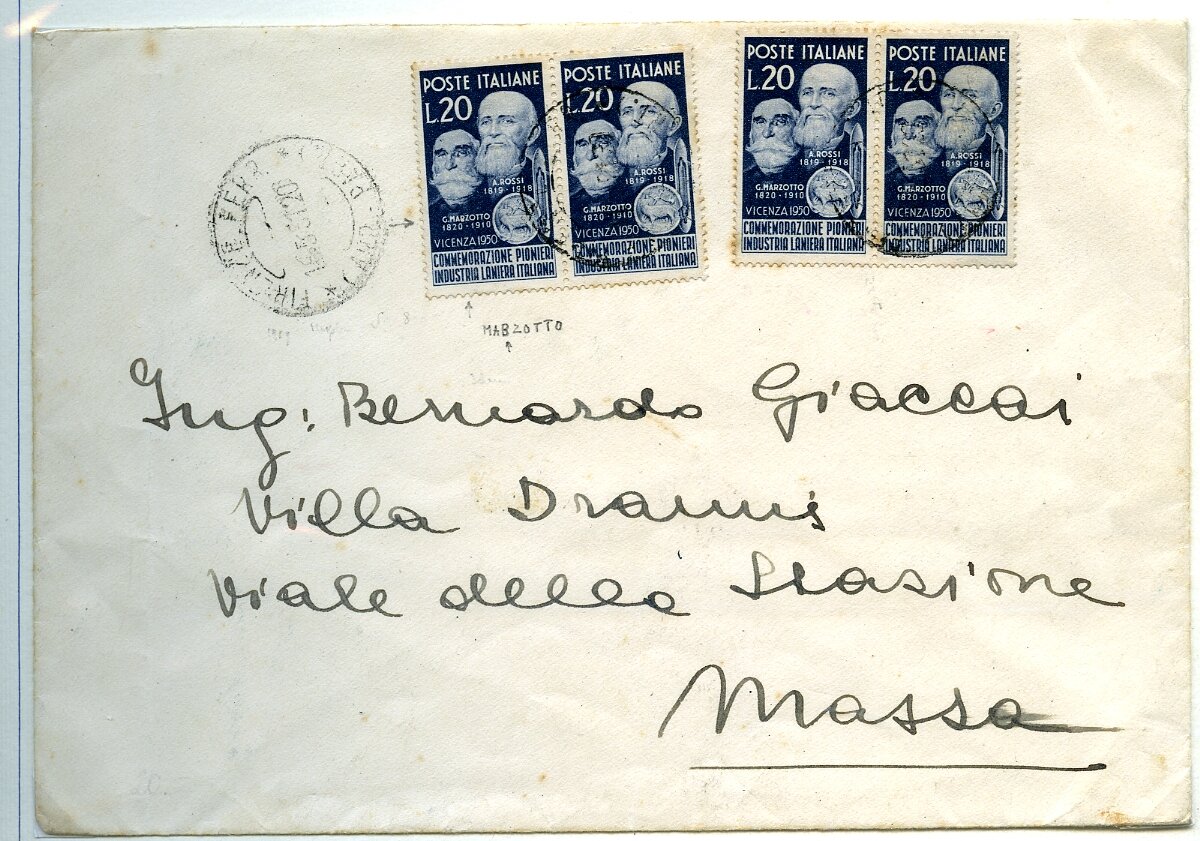 POSTE ITALIANE
L.20
A.ROSSI
1819-1918
G.MARZOTTO
1820-1910
VICENZA 1950
COMMEMORAZIONE PIONIERI
INDUSTRIA LANIERA ITALIANA
POSTE ITALIANE
L.20
A.ROSSI
1819-1918
G.MARZOTTO
1820-1910
VICENZA 1950
COMMEMORAZIONE PIONIERI
INDUSTRIA LANIERA ITALIANA
POSTE ITALIANE
L.20
A.ROSSI
1819-1918
G.MARZOTTO
1820-1910
VICENZA 1950
COMMEMORAZIONE PIONIERI
INDUSTRIA LANIERA ITALIANA
POSTE ITALIANE
L.20
A.ROSSI
1819-1918
G.MARZOTTO
1820-1910
VICENZA 1950
COMMEMORAZIONE PIONIERI
INDUSTRIA LANIERA ITALIANA
FIRENZE FERR
MABZOTTO
Ing: Bernardo Giaccai
Villa
Viale della Stazione
Massa